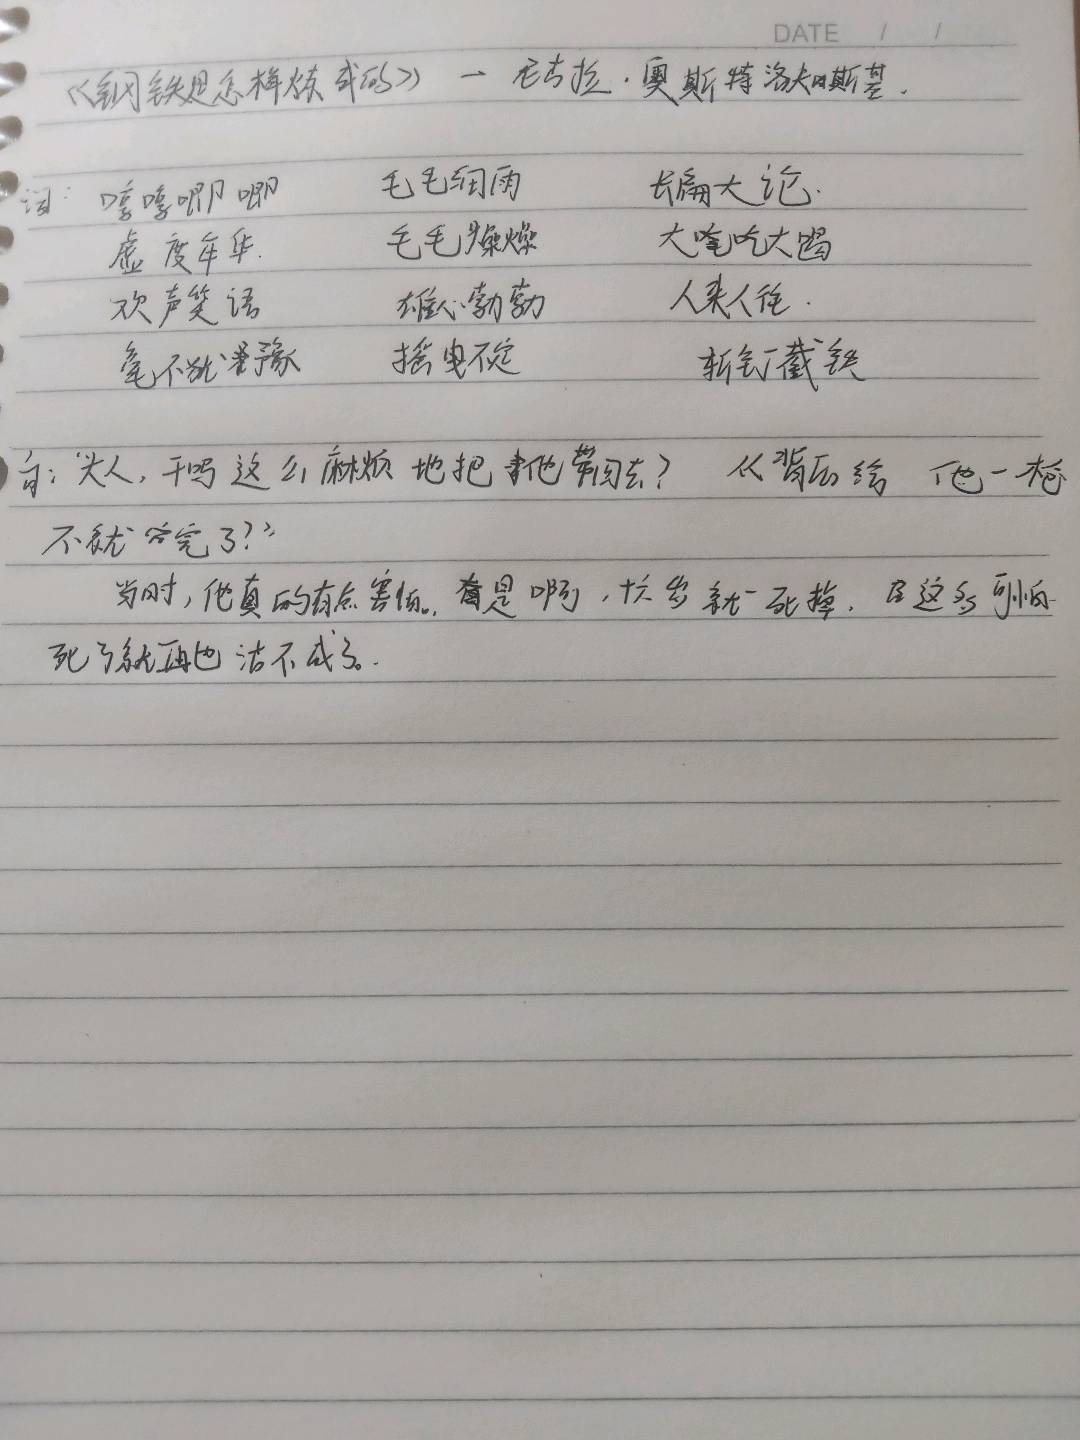 DATE / /
《钢铁是怎样炼成的》 — 尼古拉·奥斯特洛夫斯基.
词: 嘀嘀唧唧 毛毛细雨 长篇大论.
虚度年华. 毛毛燥燥 大吃大喝
欢声笑语 雄心勃勃 人来人往.
毫不犹豫 摇曳不定 斩钉截铁
句:"大人,干吗这么麻烦地把他带回去? 从背后给他一枪
不就完了?"
当时,他真的有点害怕。是啊,十六岁就死掉. 这多可怕
死了就再也活不成了.